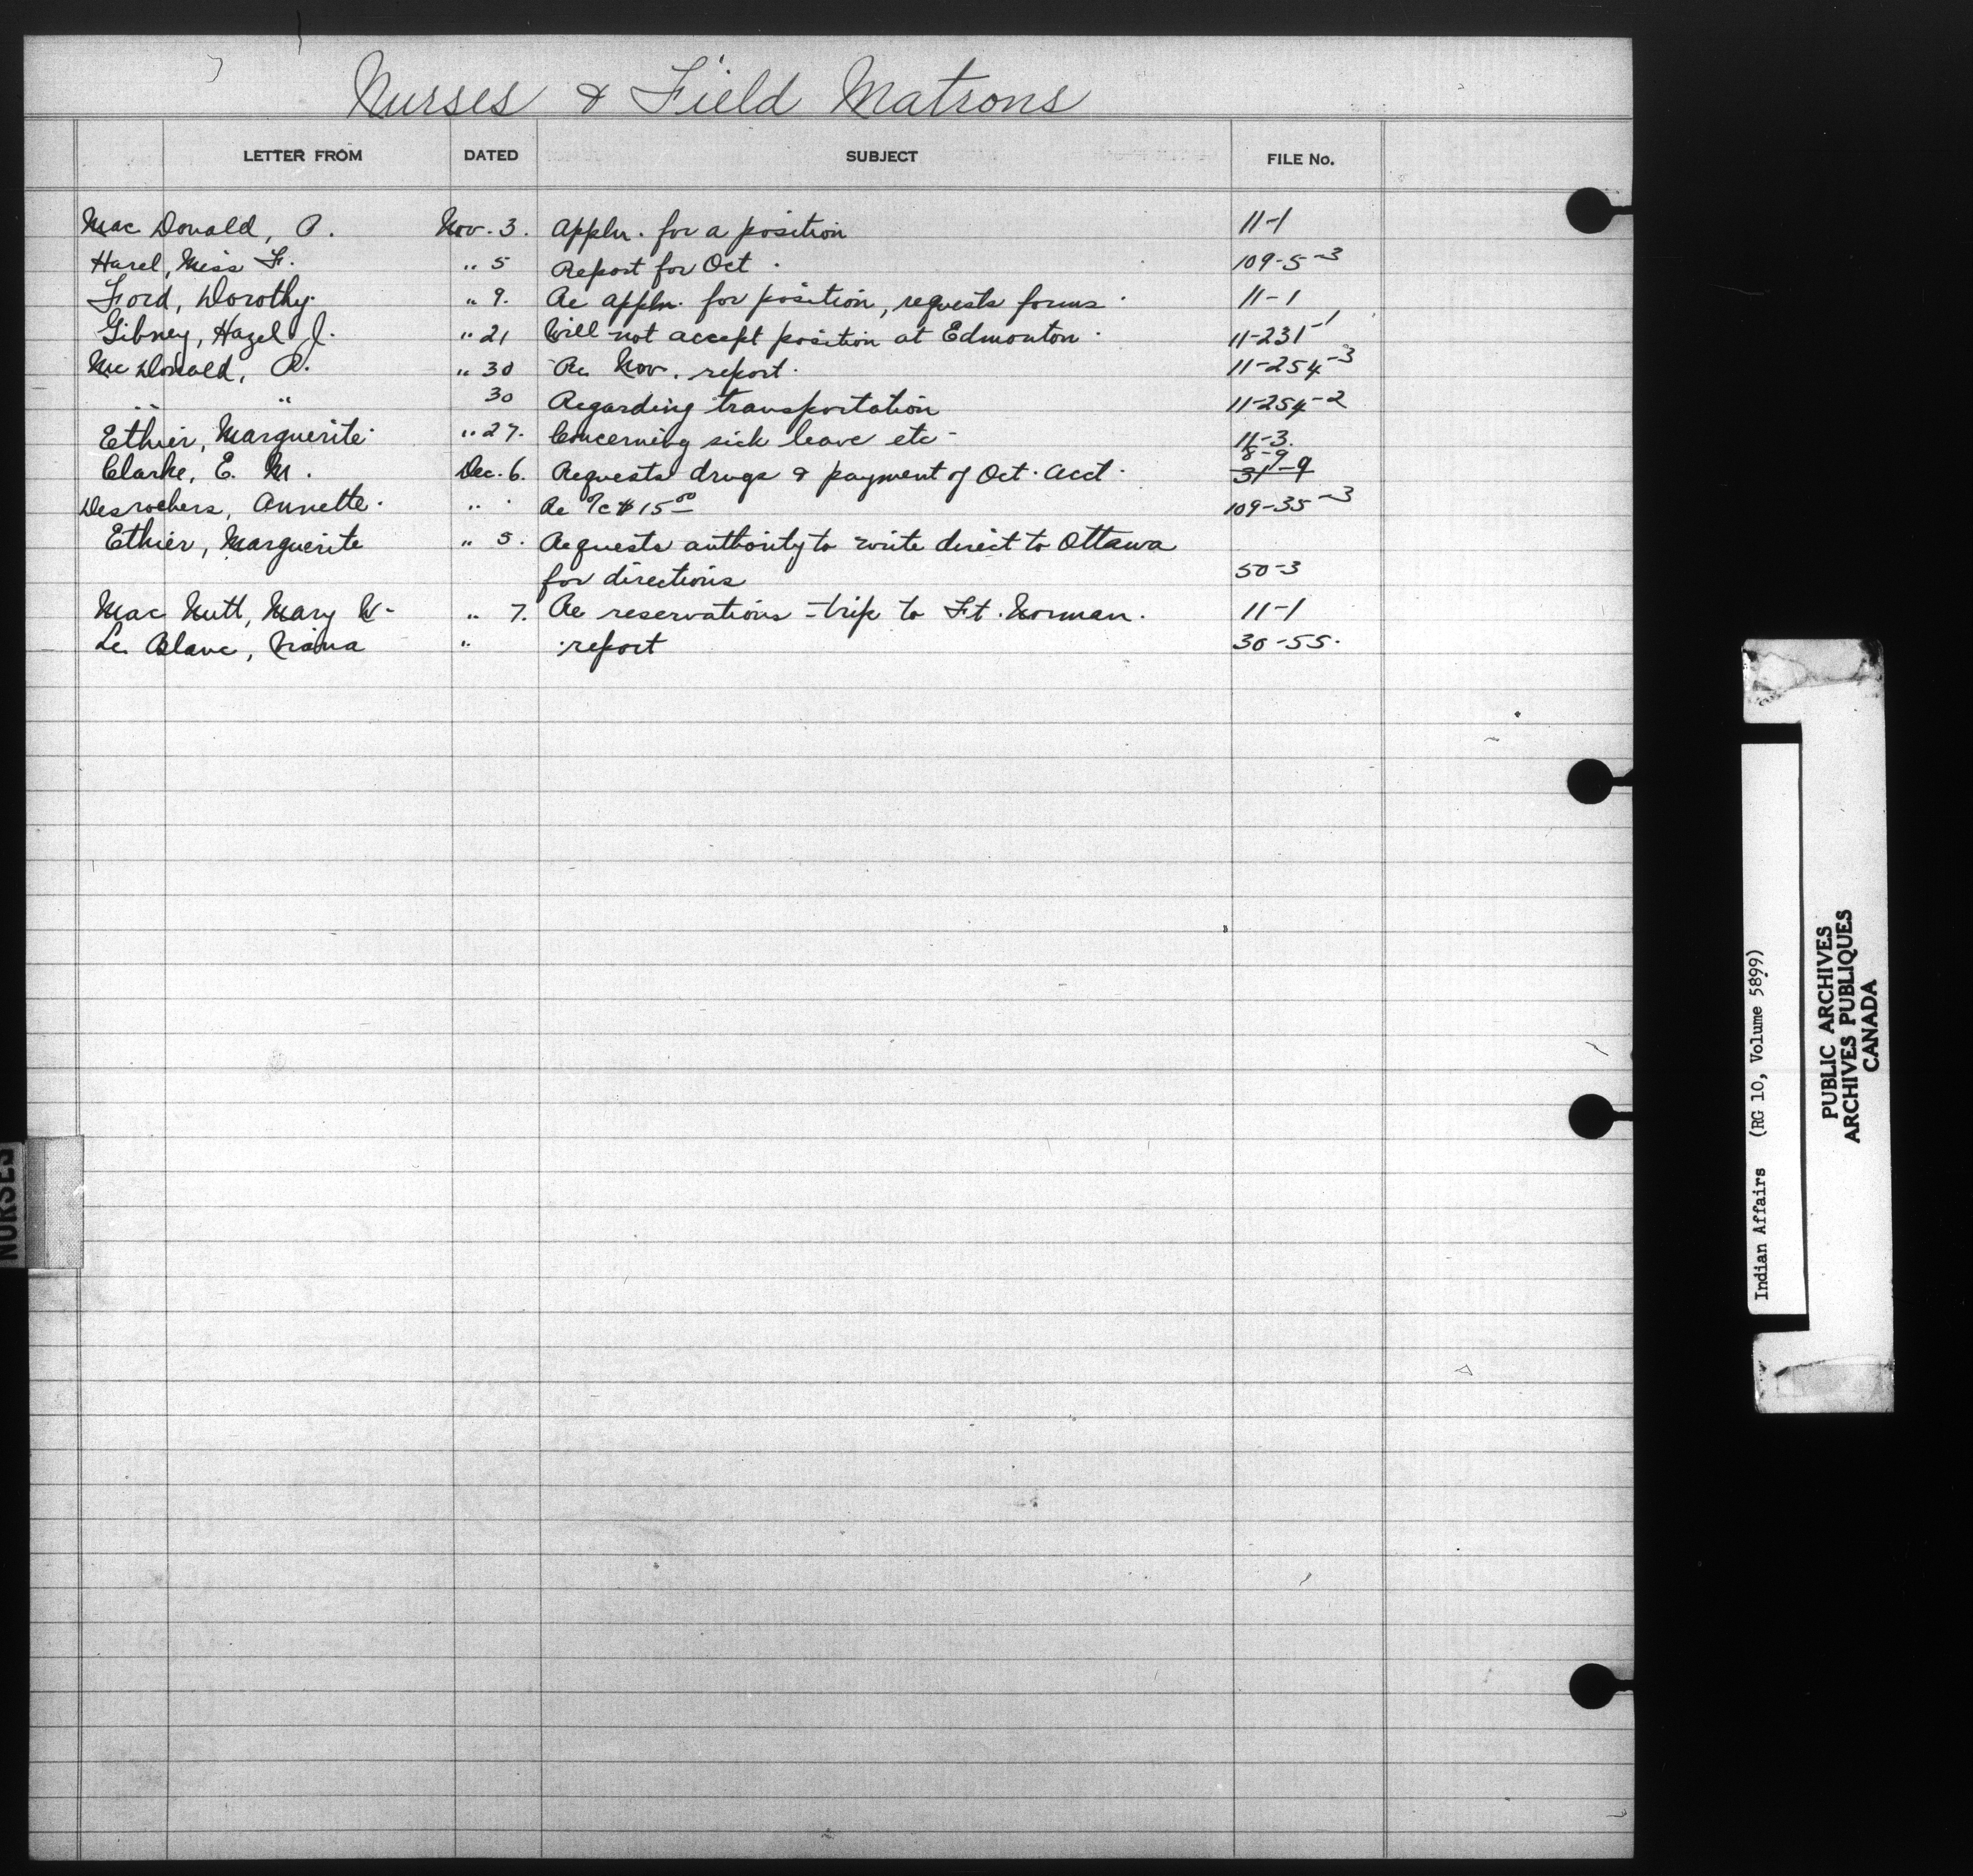 Nurses & Field Matrons
LETTER FROM DATED SUBJECT FILE No.
MacDonald, R. Nov. 3. Appln. for a position 11-1
Harel, Miss F. " 5 Report for Oct. 109-5-3
Ford, Dorothy. " 9. Re appln. for position, requests forms. 11-1
Gibney, Hazel J. " 21 Will not accept position at Edmonton. 11-231-1
McDonald, R. " 30 Re Nov. report. 11-254-3
" " 30 Regarding transportation 11-254-2
Ethier, Marguerite " 27. Concerning sick leave etc 11-3.
Clarke, E. M. Dec. 6. Requests drugs & payment of Oct. Acct. 8-9 31-9
Desrochers, Annette. " " Re a/c $15.00 109-35-3
Ethier, Marguerite " 5. Requests authority to write direct to Ottawa
for directions 50-3
MacNutt, Mary W- " 7. Re reservations - trip to Ft. Norman. 11-1
Le Blanc, " report 30-55.
NURSES
Indian Affairs (RG 10, Volume 5899)
PUBLIC ARCHIVES
ARCHIVES PUBLIQUES
CANADA